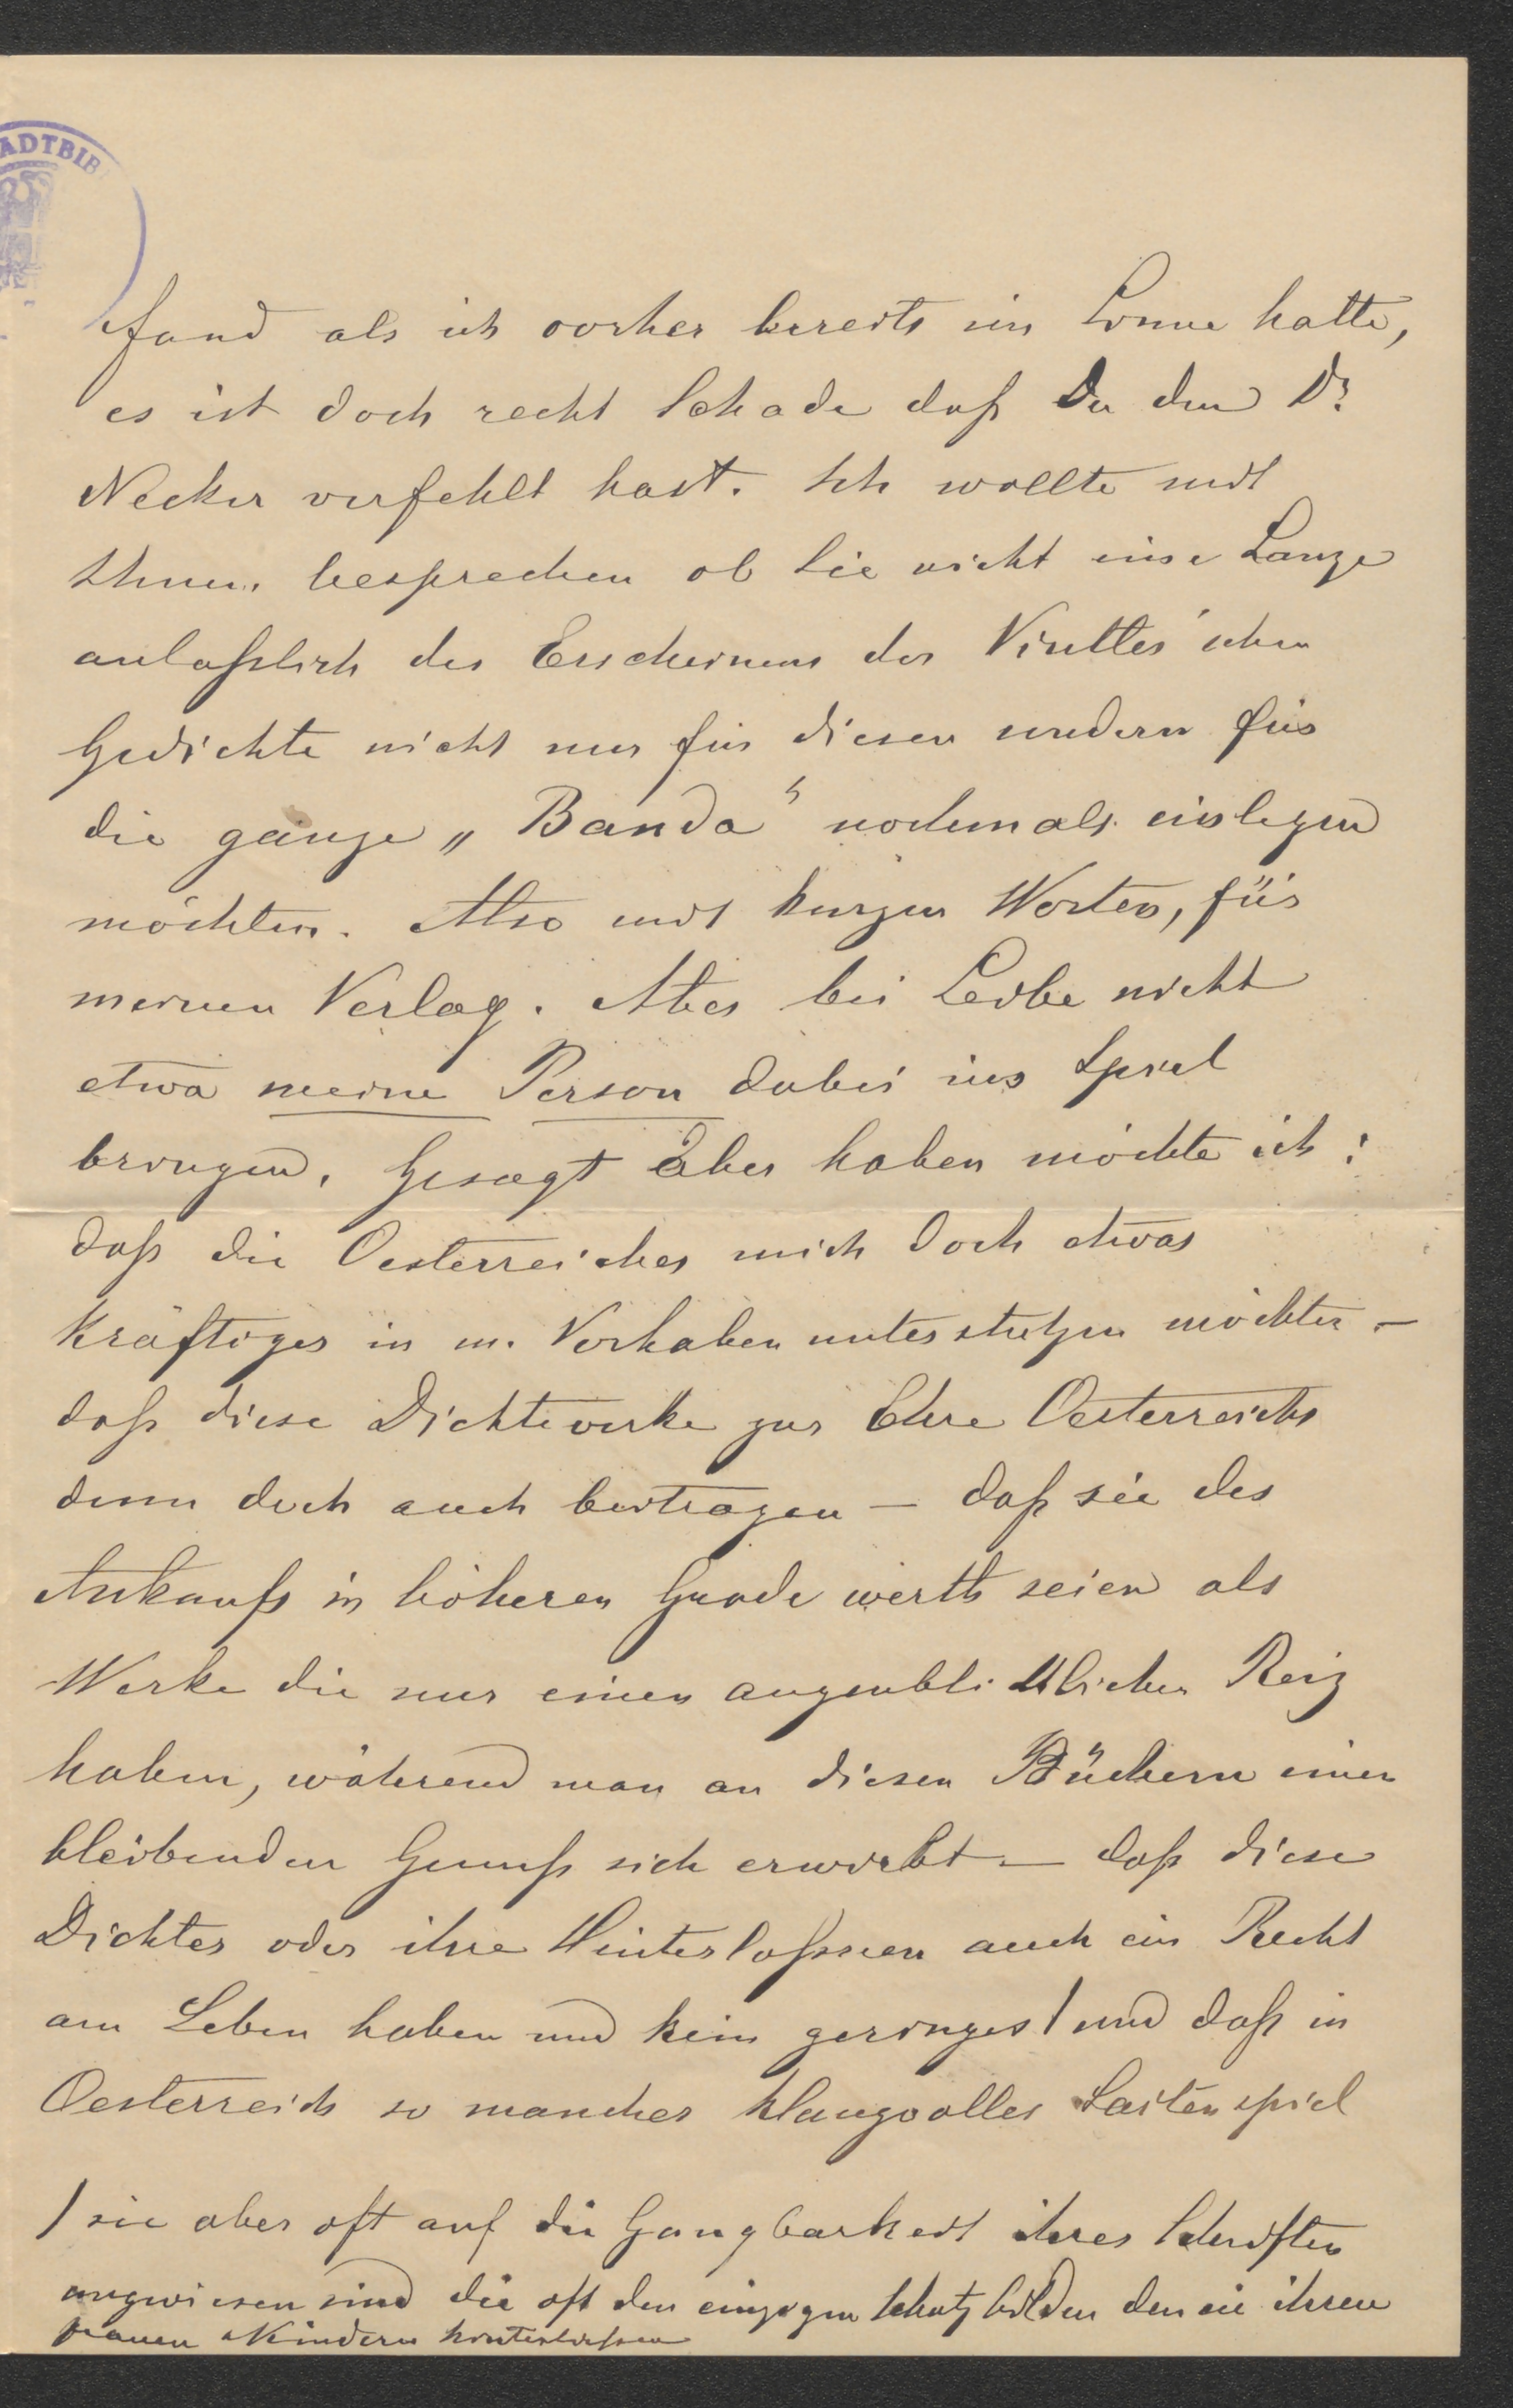 ADTBIB
fand als ich vorher bereits im Sinne hatte,
es ist doch recht Schade daß Du den Dr
Necker verfehlt hast. Ich wollte mit
Ihnen besprechen ob Sie nicht eine Lanze
anlaßlich des Erscheinens der 'schen
Gedichte nicht nur für diesen sondern für
die ganze „Banda" nochmals einlegen
möchten. Also mit kurzen Worten, für
meinen Verlag. Aber bei Leibe nicht
etwa meine Person dabei ins Spiel
bringen. Gesagt aber haben möchte ich:
daß die Oesterreicher mich doch etwas
kräftiger in m. Vorhaben unterstutzen möchten –
daß diese Dichtwerke zur Ehre Oesterreichs
denn doch auch beitragen – daß sie des
Ankaufs in höheren Grade werth seien als
Werke die nur einen augenblicklichen Reiz
haben, während man an diesen Büchern einen
bleibenden Genuß sich erwirbt – daß diese
Dichter oder ihre Hinterlaßnen auch ein Recht
am Leben haben und kein geringes / und daß in
Oesterreich so manches klangvolles Saitenspiel
/ sie aber oft auf die Gangbarkeit ihrer Schriften
angwiesen sind die oft den einzigen Schatz bilden den sie ihren
Frauen & Kindern hinterlassen